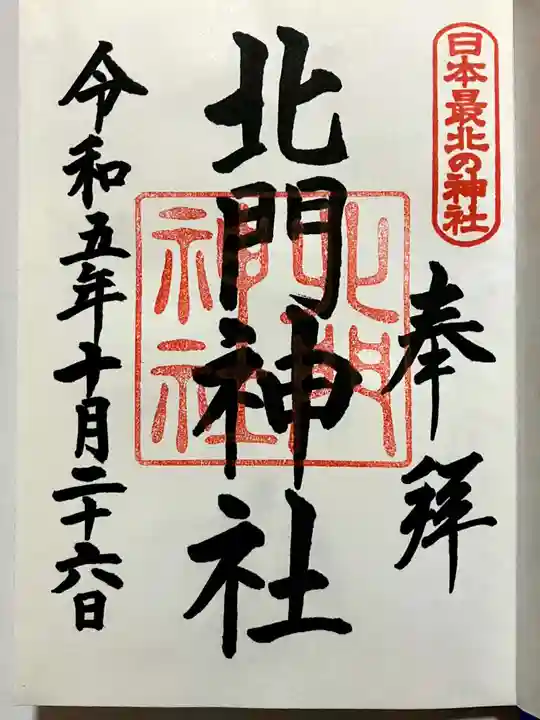 日本最北の神社
奉拝
北門神社
北門
神社
令和五年十月二十六日